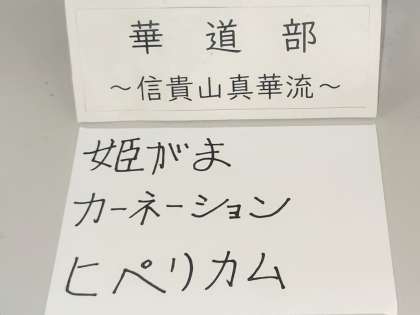 華道部
～信貴山真華流～
姫がま
カーネーション
ヒペリカム